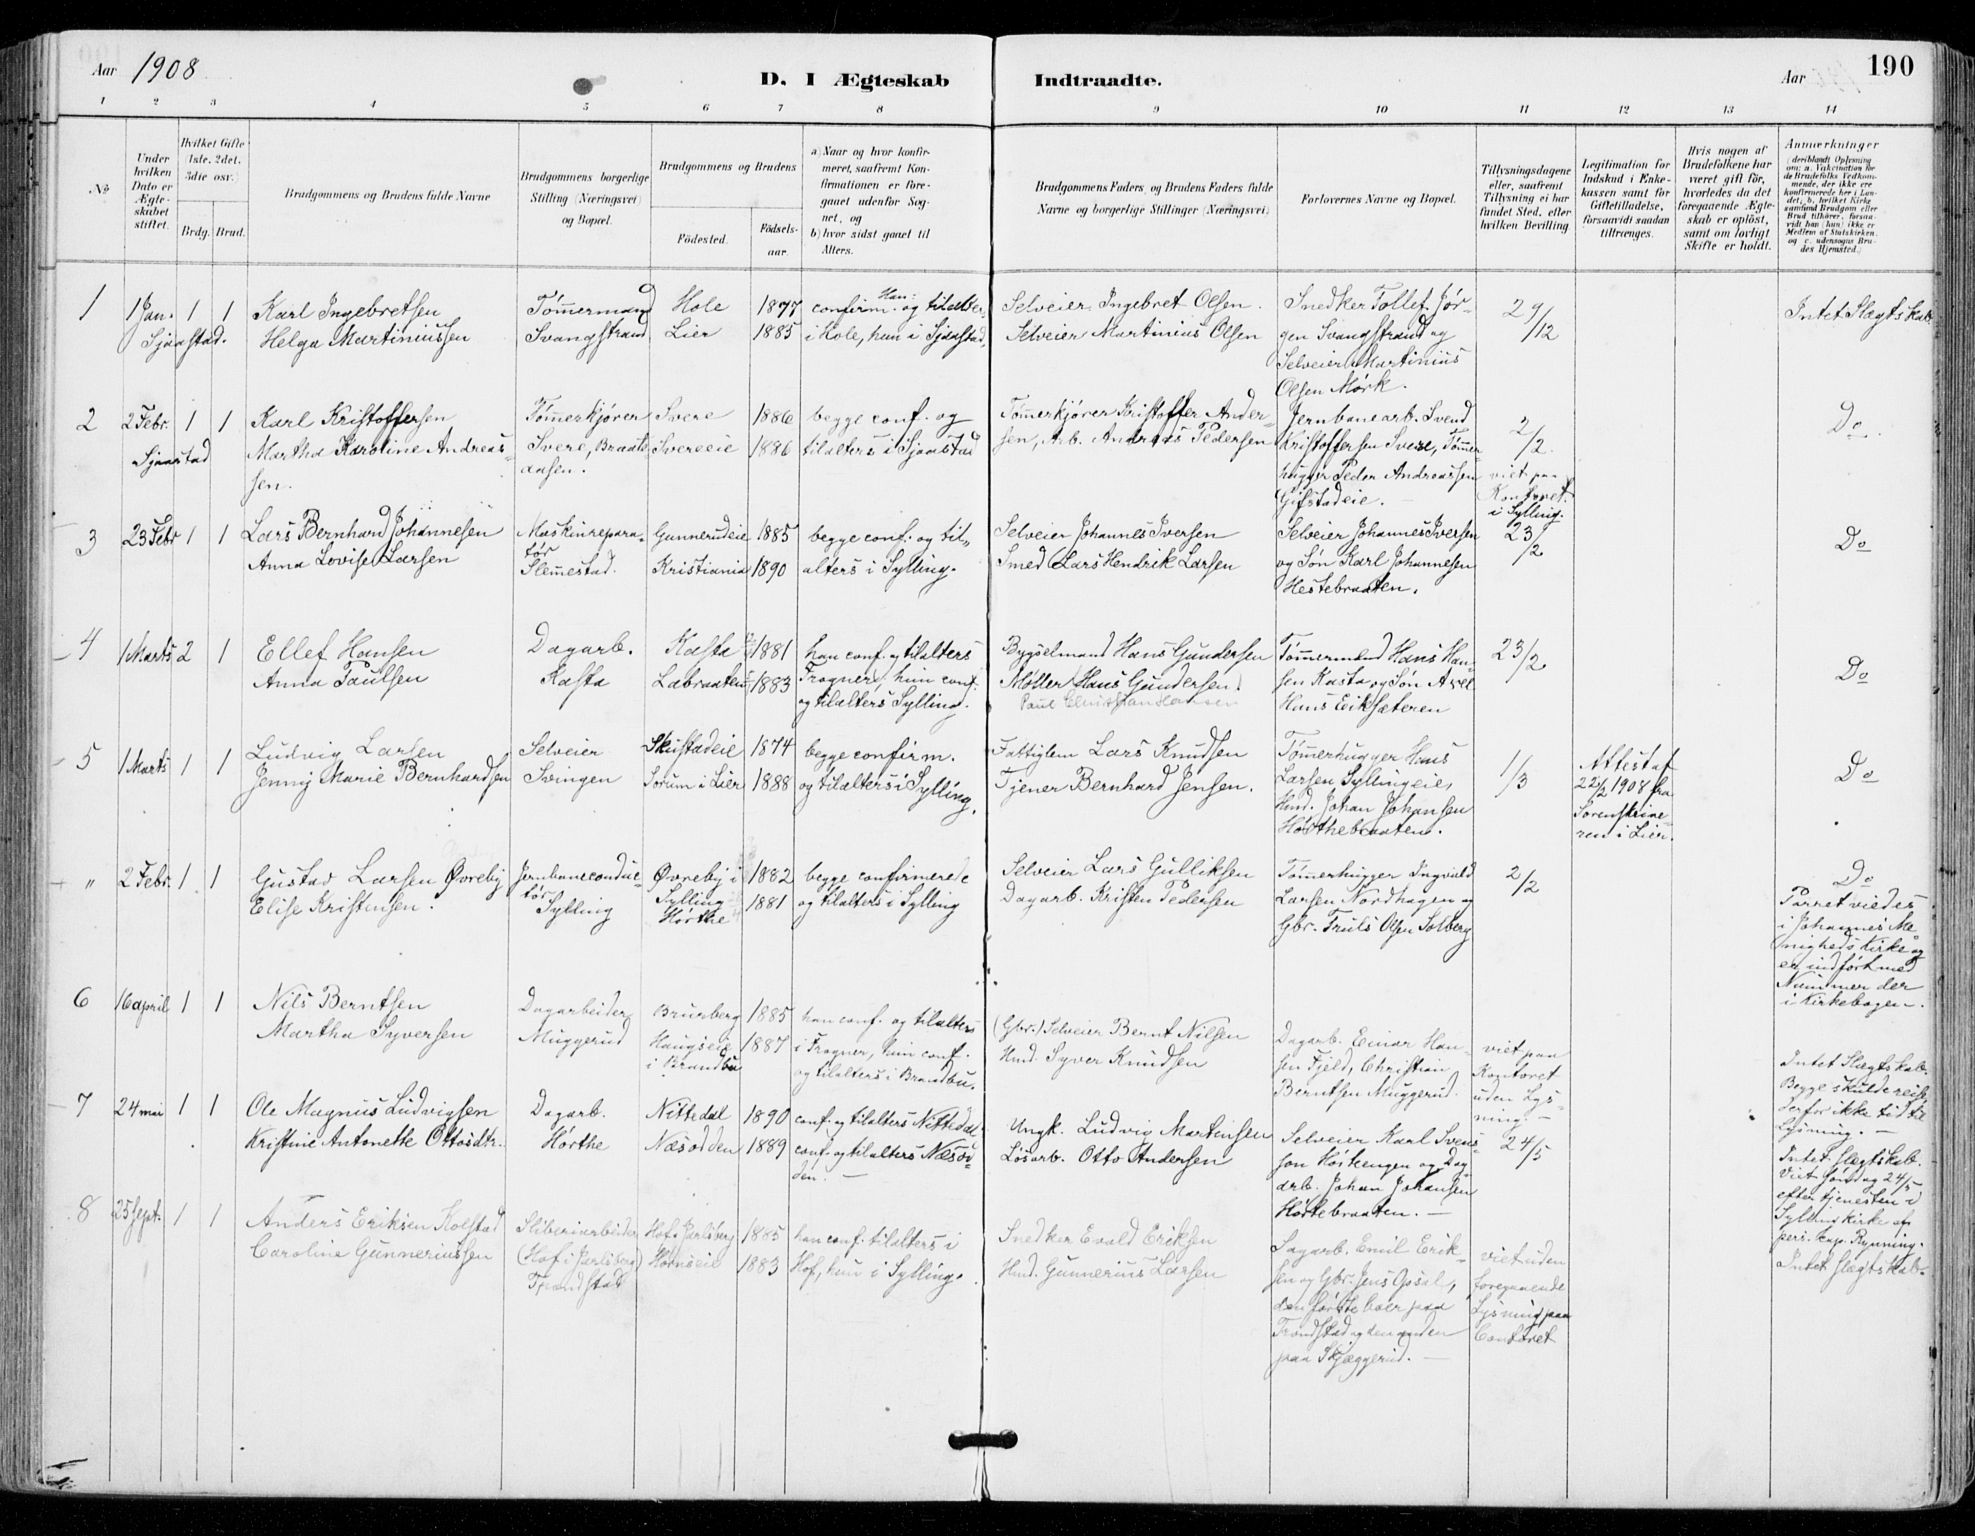 Aar 1908
D. I Ægteskab Indtraadte.
Aar
190
1 2 3 4 5 6 7 8 9 10 11 12 13 14
No
Under hvilken Dato er Ægteskabet stiftet.
Hvilket Gifte (1ste, 2det, 3die osv.)
Brdg. Brud.
Brudgommens og Brudens fulde Navne
Brudgommens borgerlige Stilling (Næringsvei) og Bopæl.
Brudgommens og Brudens
Fødested.
Fødselsaar.
a) Naar og hvor konfirmeret, saafremt Konfirmationen er foregaaet udenfor Sognet, og
b) hvor sidst gaaet til Alters.
Brudgommens Faders og Brudens Faders fulde Navne og borgerlige Stillinger (Næringsvei)
Forlovernes Navne og Bopæl.
Tillysningsdagene eller, saafremt Tillysning ei har fundet Sted, efter hvilken Bevilling
Legitimation for Indskud i Enkekassen samt for Giftetilladelse, forsaavidt saadan tiltrænges.
Hvis nogen af Brudefolkene har været gift før, hvorledes da det foregaaende Ægteskab er opløst, samt om lovligt Skifte er holdt.
Anmærkninger
(deriblandt Oplysning om: a. Vakcination for de Brudefolks Vedkommende, der ikke ere konfirmerede her i Landet; b. hvilket Kirkesamfund Brudgom eller Brud tilhører, forsaavidt han (hun) ikke er Medlem af Statskirken, og c. udensogns Brudes Hjemsted.)
1
1 Jan.
Sjaastad.
1 1
Karl Ingebretsen
Helga Martiniussen
Tømmermand
Svangstrand
Hole 1877
Lier 1885
Han:
confirm. og tilalters
i Hole, hun i Sjaastad.
Selveier Ingebret Olsen.
Selveier Martinius Olsen
Snedker Tollef Jør-
gen Svangstrand og
Selveier Martinius
Olsen Mørk.
29/12
Intet Slægtskab.
2
2 Febr.
Sjaastad
1 1
Karl Kristoffersen
Martha Karoline Andreas-
sen.
Tømmerkjører
Svere, Braate
aasen.
Svere 1886
Svereeie 1886
begge conf. og
tilalters i Sjaastad
Tømmerkjører Kristoffer Ander-
sen, Arb. Andreas Pedersen
Jernbanearb. Svend
Kristoffersen Svere, Tømmer-
hugger Peder Andreassen
Gifstadeie.
2/2
viet paa
Kontoret
i Sylling.
Do
3
23 Febr
1 1
Lars Bernhard Johannesen
Anna Lovise Larsen
Maskinrepara-
tør
Slemmestad.
Gunnerudeie 1885
Kristiania 1890
begge conf. og til-
alters i Sylling.
Selveier Johannes Iversen
Smed Lars Hendrik Larsen
Selveier Johannes Iversen
og Søn Karl Johannesen
Hestebraaten.
23/2
Do
4
1 Marts
2 1
Ellef Hansen
Anna Paulsen
Dagarb.
Kasta
Kasta 1881
Labraaten 1883
han conf. og tilalters
Frogner, hun conf.
og tilalters Sylling.
Bygselmand Hans Gundersen
Møller Hans Gundersen.
Paul Christian Hansen
Tømmermand Hans Han-
sen Kasta og Søn Axel
Hans Eiksæteren
23/2
Do
5
1 Marts
1 1
Ludvig Larsen
Jenny Marie Bernhardsen
Selveier
Svingen
Skustadeie 1874
Sørum i Lier 1888
begge confirm.
og tilalters i Sylling.
Fattiglem Lars Knudsen
Tjener Bernhard Jensen.
Tømmerhugger Hans
Larsen Syllingeie,
Hmd. Johan Johansen
Hørthebraaten.
1/3
Attest af
22/2 1908 fra
Sorenskrive-
ren i Lier.
Do
"
2 Febr.
1 1
Gustav Larsen Øvreby
Elise Kristensen.
Jernbaneconduc-
tør
Sylling
Øvreby i 1882
Sylling 1881
Hørthe
begge confirmerede
og tilalters i Sylling
Selveier Lars Gulliksen
Dagarb. Kristen Pedersen
Tømmerhugger Ingvald
Larsen Nordhagen og
Gbr. Truls Olsen Solberg
2/2
Do
Parret viedes
i Johannes Me
nigheds Kirke og
er indført med
Nummer der
i Kirkebogen.
6
16 april
1 1
Nils Berntsen
Martha Syversen
Dagarbeider
Muggerud
Brurberg 1885
Haugseie 1887
i Brandbu
han conf. og tilalters
i Frogner, hun conf.
og tilalters i Brandbu.
(Gbr.) Selveier Bernt Nilsen
Hmd. Syver Knudsen
Dagarb. Einar Han-
sen Fjeld, Christian
Berntsen Muggerud.
viet paa
Kontoret
uden Lys-
ning. —
Intet Slægtskab.
Begge skulde reise
derfor ikke tid til
Lysning. —
7
24 mai
1 1
Ole Magnus Ludvigsen
Kristine Antonette Ottosdtr.
Dagarb.
Hørthe
Nittedal 1890
Næsodden 1889
conf. og tilalters Nittedal.
conf. og tilalters Næsod-
den. —
Ungk. Ludvig Martinsen
Løsarb. Otto Andersen
Selveier Karl Svens-
son Hørtengen og Dag-
arb. Johan Johansen
Hørtebraaten. —
24/5
Intet Slægtskab.
Viet Søndag 24/5
efter tjenesten i
Sylling kirke af
pers. kap. Rynning.
8
25 Sept.
1 1
Anders Eriksen Kolstad
Caroline Gunneriussen
Sliberiarbeider
(Hof i Jarlsberg)
Trandstad
Hof i Jarlsberg 1885
Hørnseie 1883
han conf. tilalters i
Hof, hun i Sylling.
Snedker Evald Eriksen
Hmd. Gunnerius Larsen
Sagarb. Emil Erik-
sen og Gbr. Jens Opsal,
den første boer paa
Trandstad og den anden
paa Skjæggerud. —
viet uden
foregaaende
Lysning paa
Contoret
Intet Slægtskab.